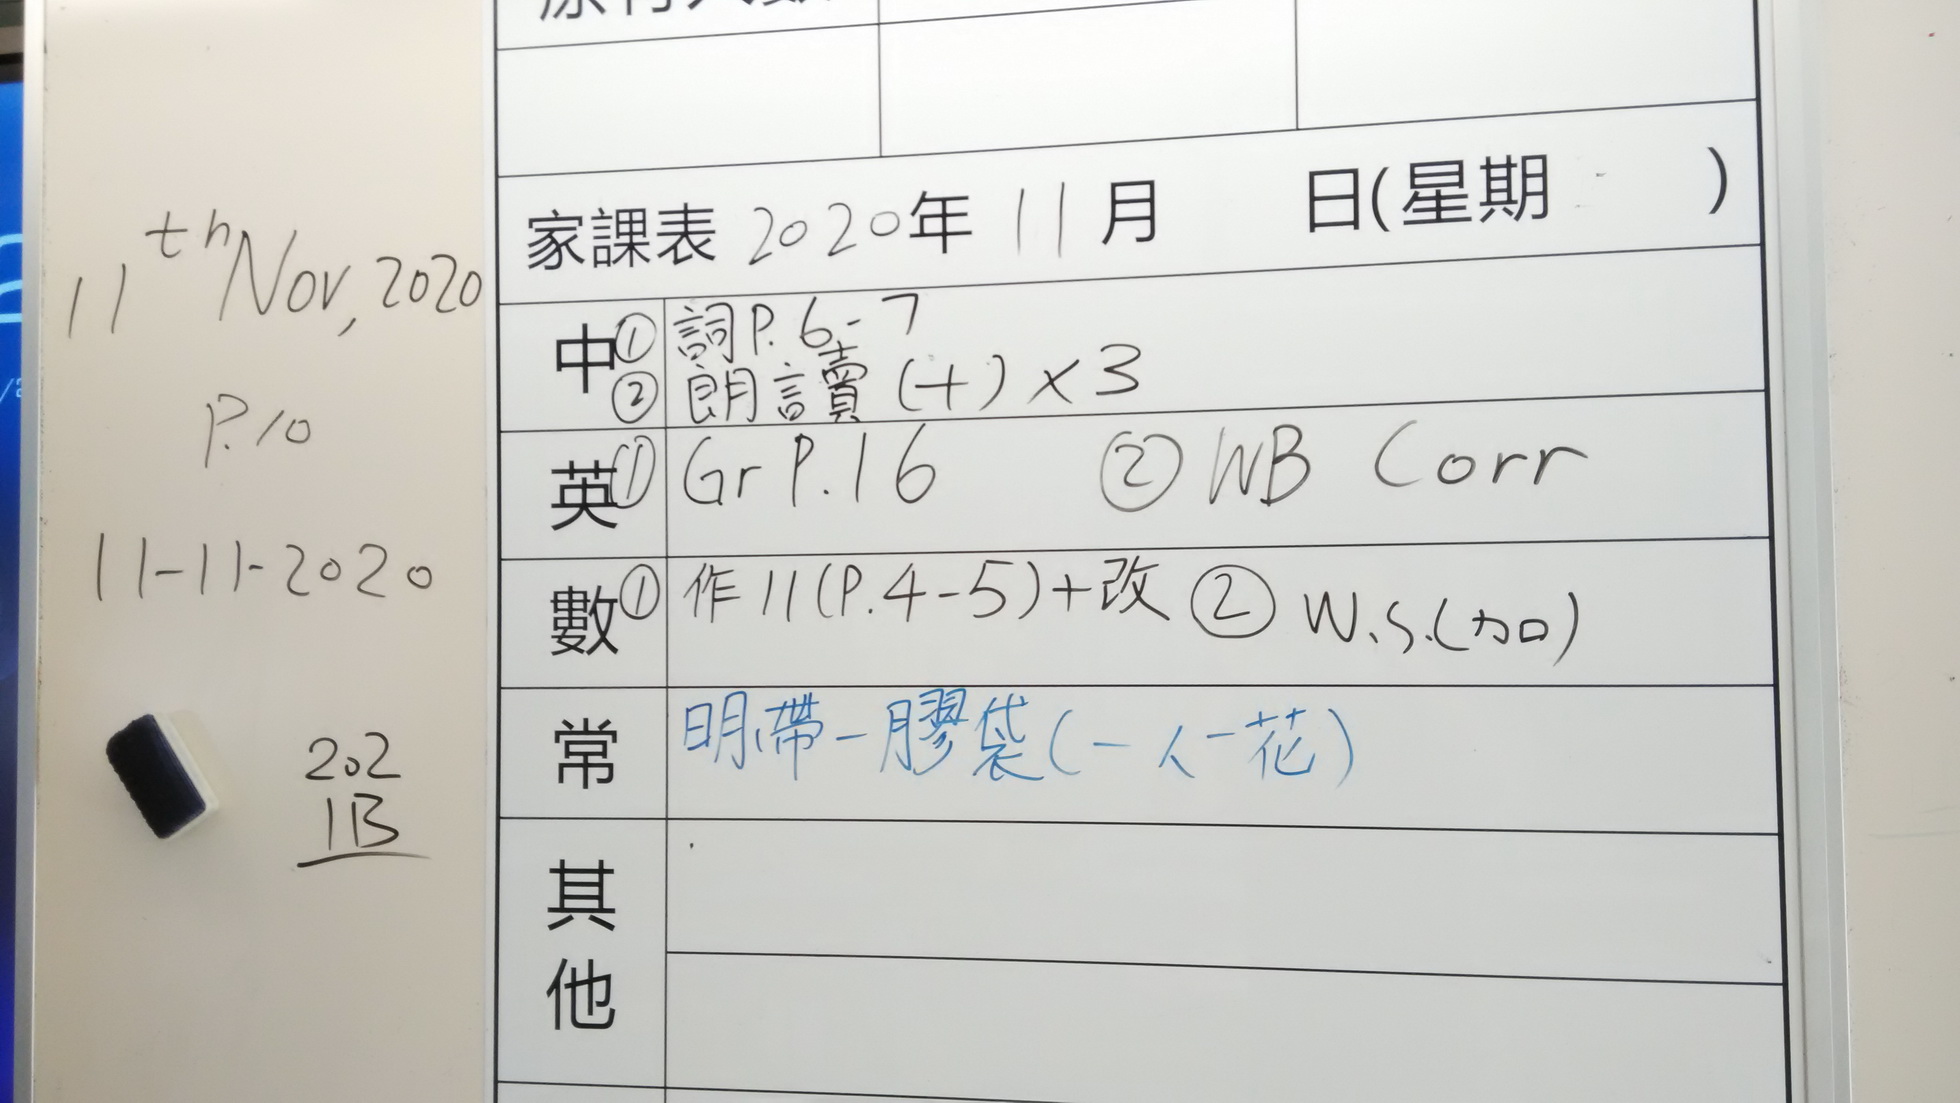 11th Nov, 2020
P.10
11-11-2020
202
1B
家課表 2020年 11月 日(星期 )
中 ① 詞P.6-7
② 朗讀 (十) × 3
英 ① Gr P.16 ② WB Corr
數 ① 作11(P.4-5)+改 ② W.S.(加)
常 明帶一膠袋(一人一花)
其他